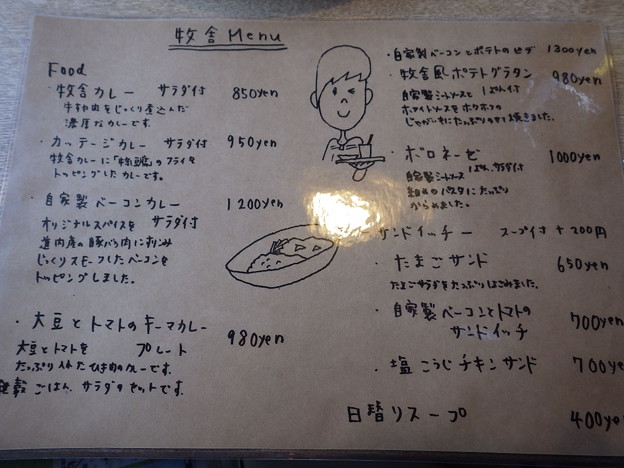 牧舎 Menu
Food
・牧舎カレー サラダ付 850yen
牛すね肉をじっくり煮込んだ
濃厚なカレーです。
・カッテージカレー サラダ付 950yen
牧舎カレーに「牛乳豆腐」のフライを
トッピングしたカレーです。
・自家製ベーコンカレー 1200yen
オリジナルスパイスを サラダ付
道内産の豚バラ肉にすりこみ
じっくりスモークしたベーコンを
トッピングしました。
・大豆とトマトのキーマカレー
プレート 980yen
大豆とトマトを
たっぷり入れたひき肉のカレーです。
雑穀ごはん、サラダのセットです。
・自家製ベーコンとポテトのピザ 1300yen
・牧舎風ポテトグラタン 980yen
自家製ミートソースと 1ぱん付
ホワイトソースをホクホクの
じゃがいもにたっぷりのせて焼きました。
・ボロネーゼ 1000yen
自家製ミートソース
パスタにたっぷり
からめました。
サンドイッチ スープ付 +200円
・たまごサンド 650yen
たまごサラダをたっぷりはさみました。
・自家製ベーコンとトマトの
サンドイッチ 700yen
・塩こうじチキンサンド 700ye
日替りスープ 400ye